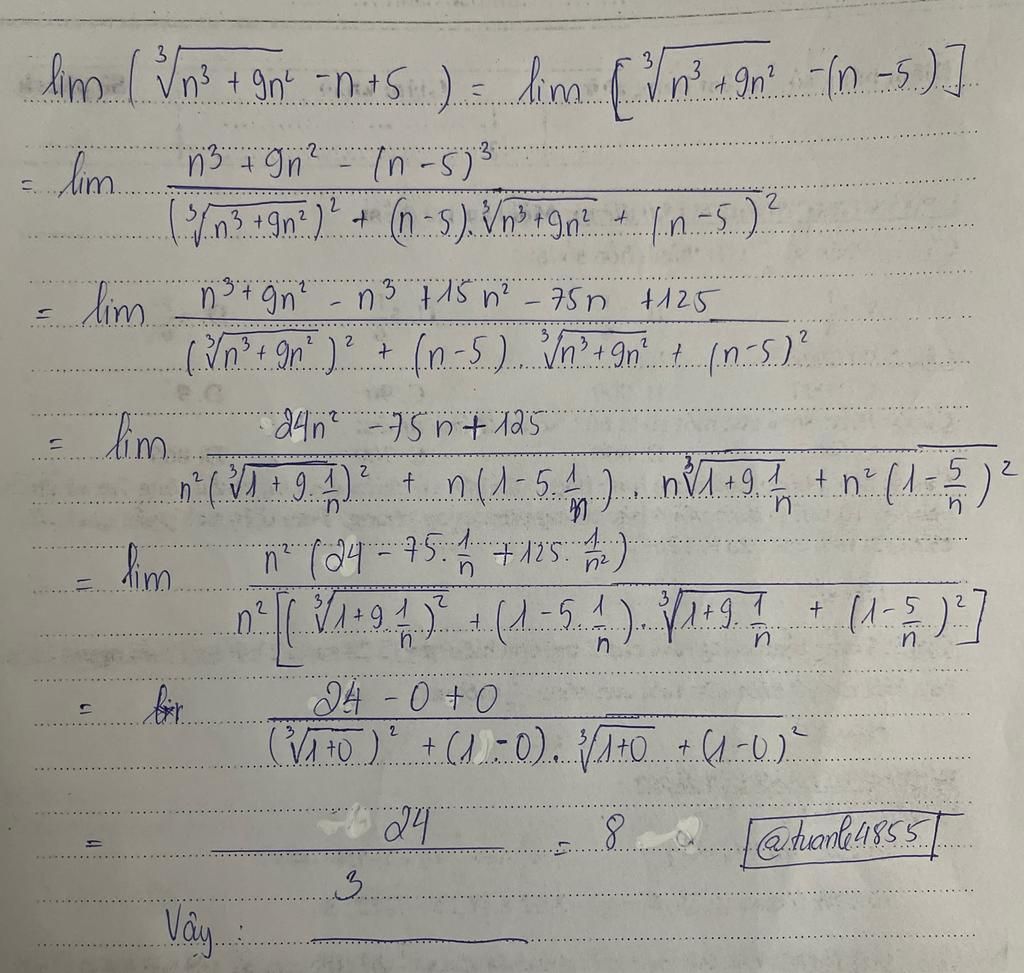 lim ( ∛(n³ + 9n²) - n + 5 ) = lim [ ∛(n³ + 9n²) - (n - 5) ]
= lim (n³ + 9n² - (n - 5)³) / ((∛(n³ + 9n²))² + (n - 5).∛(n³ + 9n²) + (n - 5)²)
= lim (n³ + 9n² - n³ + 15n² - 75n + 125) / ((∛(n³ + 9n²))² + (n - 5) . ∛(n³ + 9n²) + (n - 5)²)
= lim (24n² - 75n + 125) / (n²(∛(1 + 9.1/n))² + n(1 - 5.1/n) . n∛(1 + 9.1/n) + n²(1 - 5/n)²)
= lim n²(24 - 75.1/n + 125.1/n²) / n²[(∛(1 + 9.1/n))² + (1 - 5.1/n).∛(1 + 9.1/n) + (1 - 5/n)²]
= (24 - 0 + 0) / ((∛(1+0))² + (1 - 0).∛(1+0) + (1 - 0)²)
= 24 / 3 = 8 @tuanle4855
Vây :